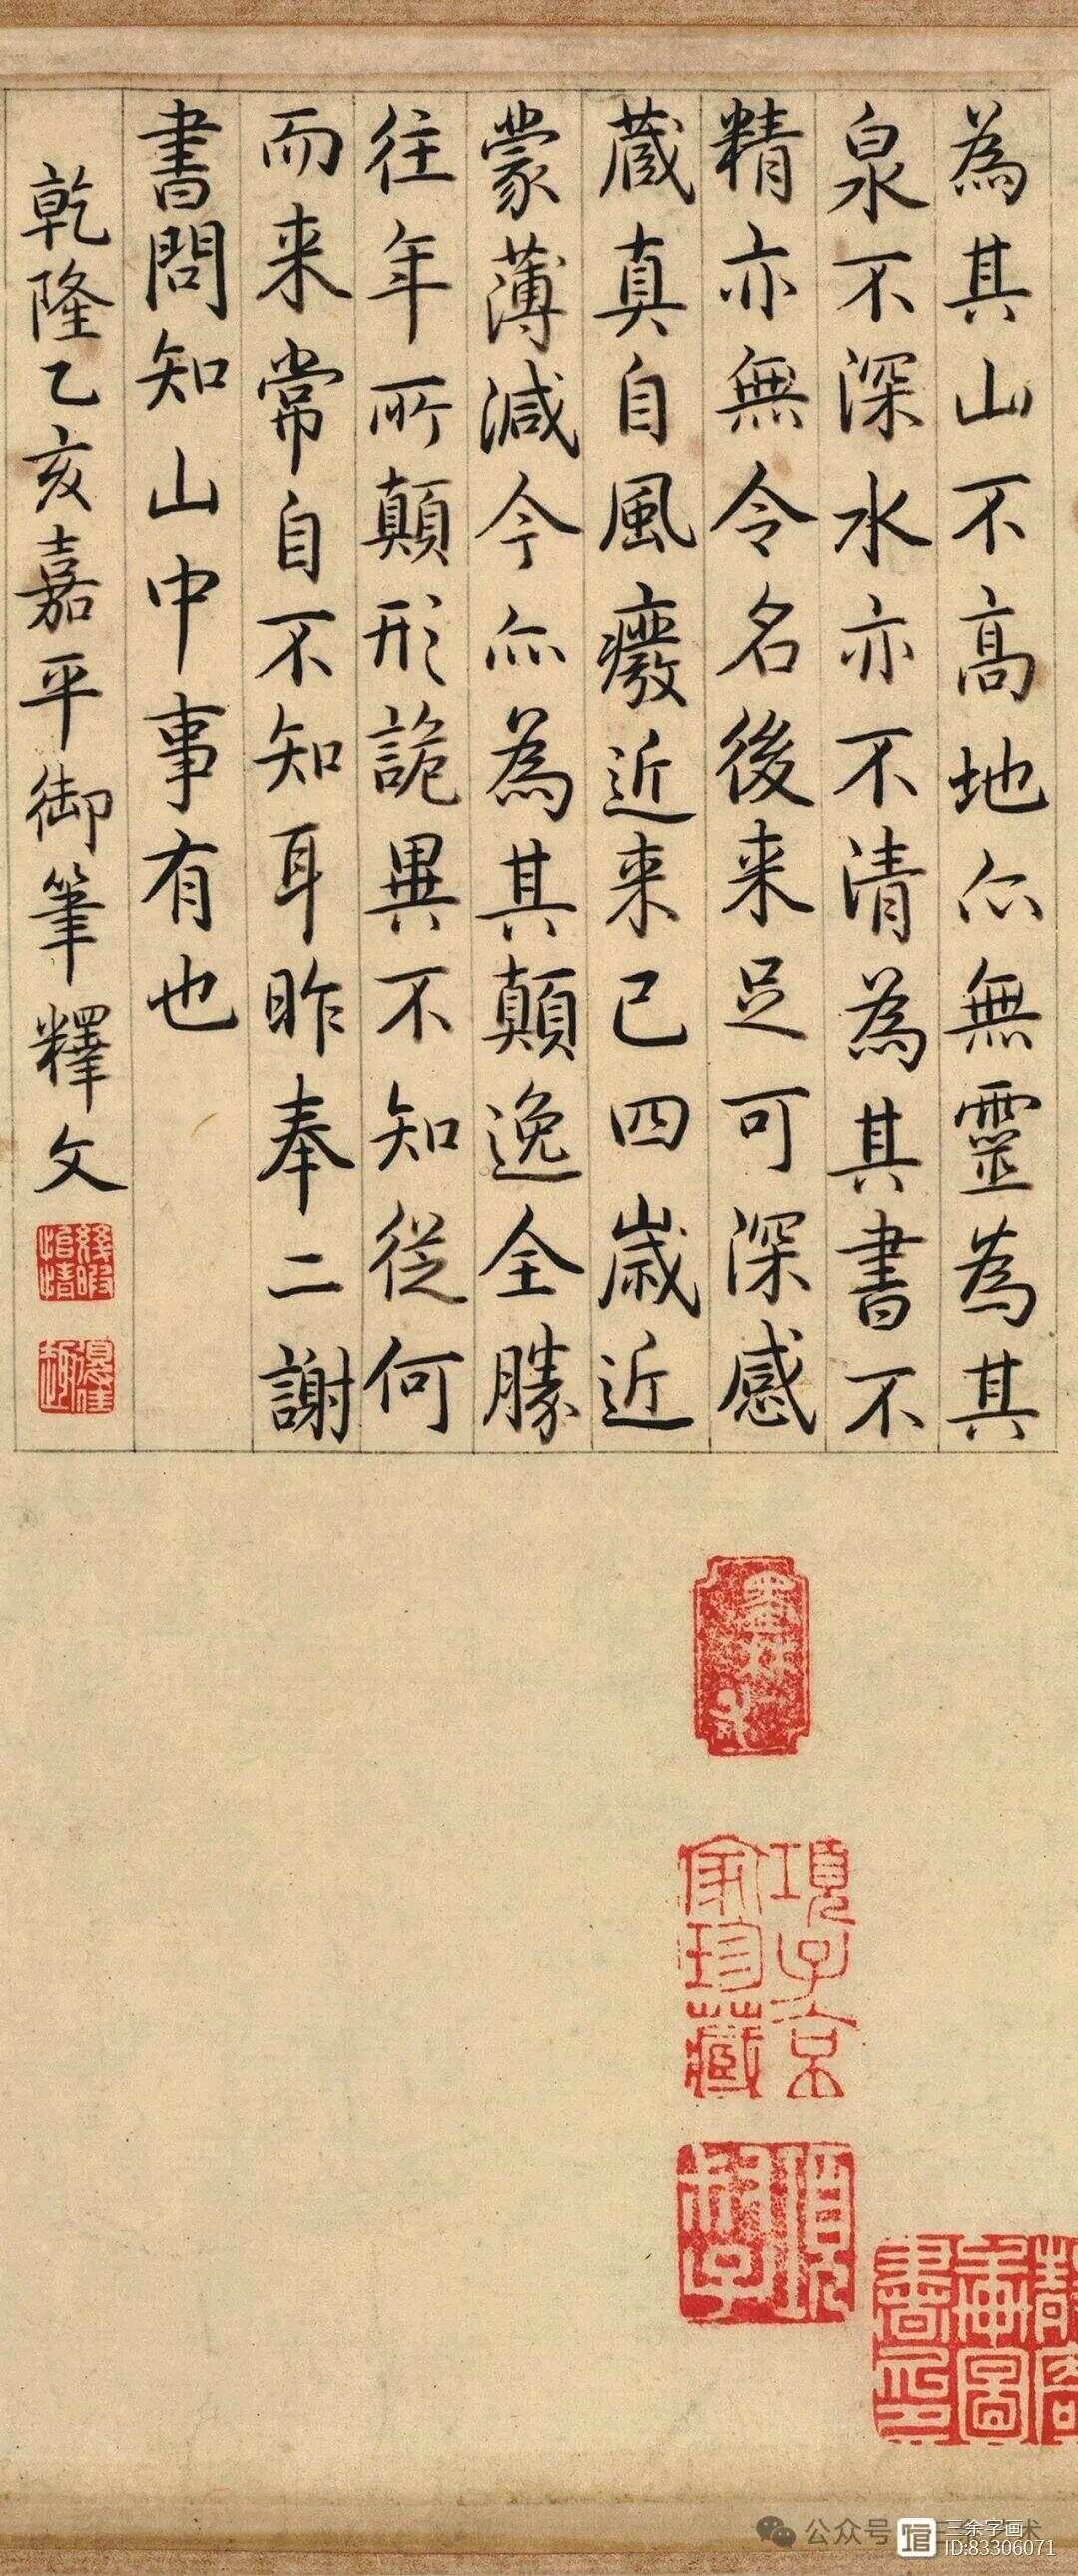 為其山不高地亦無靈為其
泉不深水亦不清為其書不
精亦無令名後来足可深感
蔵真自風癈近来已四歳近
蒙薄減今亦為其顛逸全勝
往年所顛形詭異不知従何
而来常自不知耳昨奉二謝
書問知山中事有也
乾隆乙亥嘉平御筆釋文
項子京
家珍藏
公众号
三余字画
ID:83306071